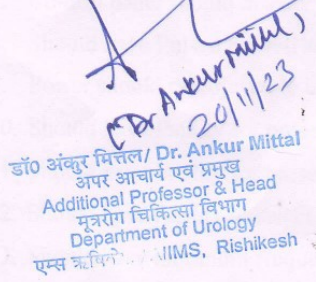 (Dr Ankur Mittal)
20/11/23
डॉ0 अंकुर मित्तल/ Dr. Ankur Mittal
अपर आचार्य एवं प्रमुख
Additional Professor & Head
मूत्ररोग चिकित्सा विभाग
Department of Urology
एम्स IIMS, Rishikesh